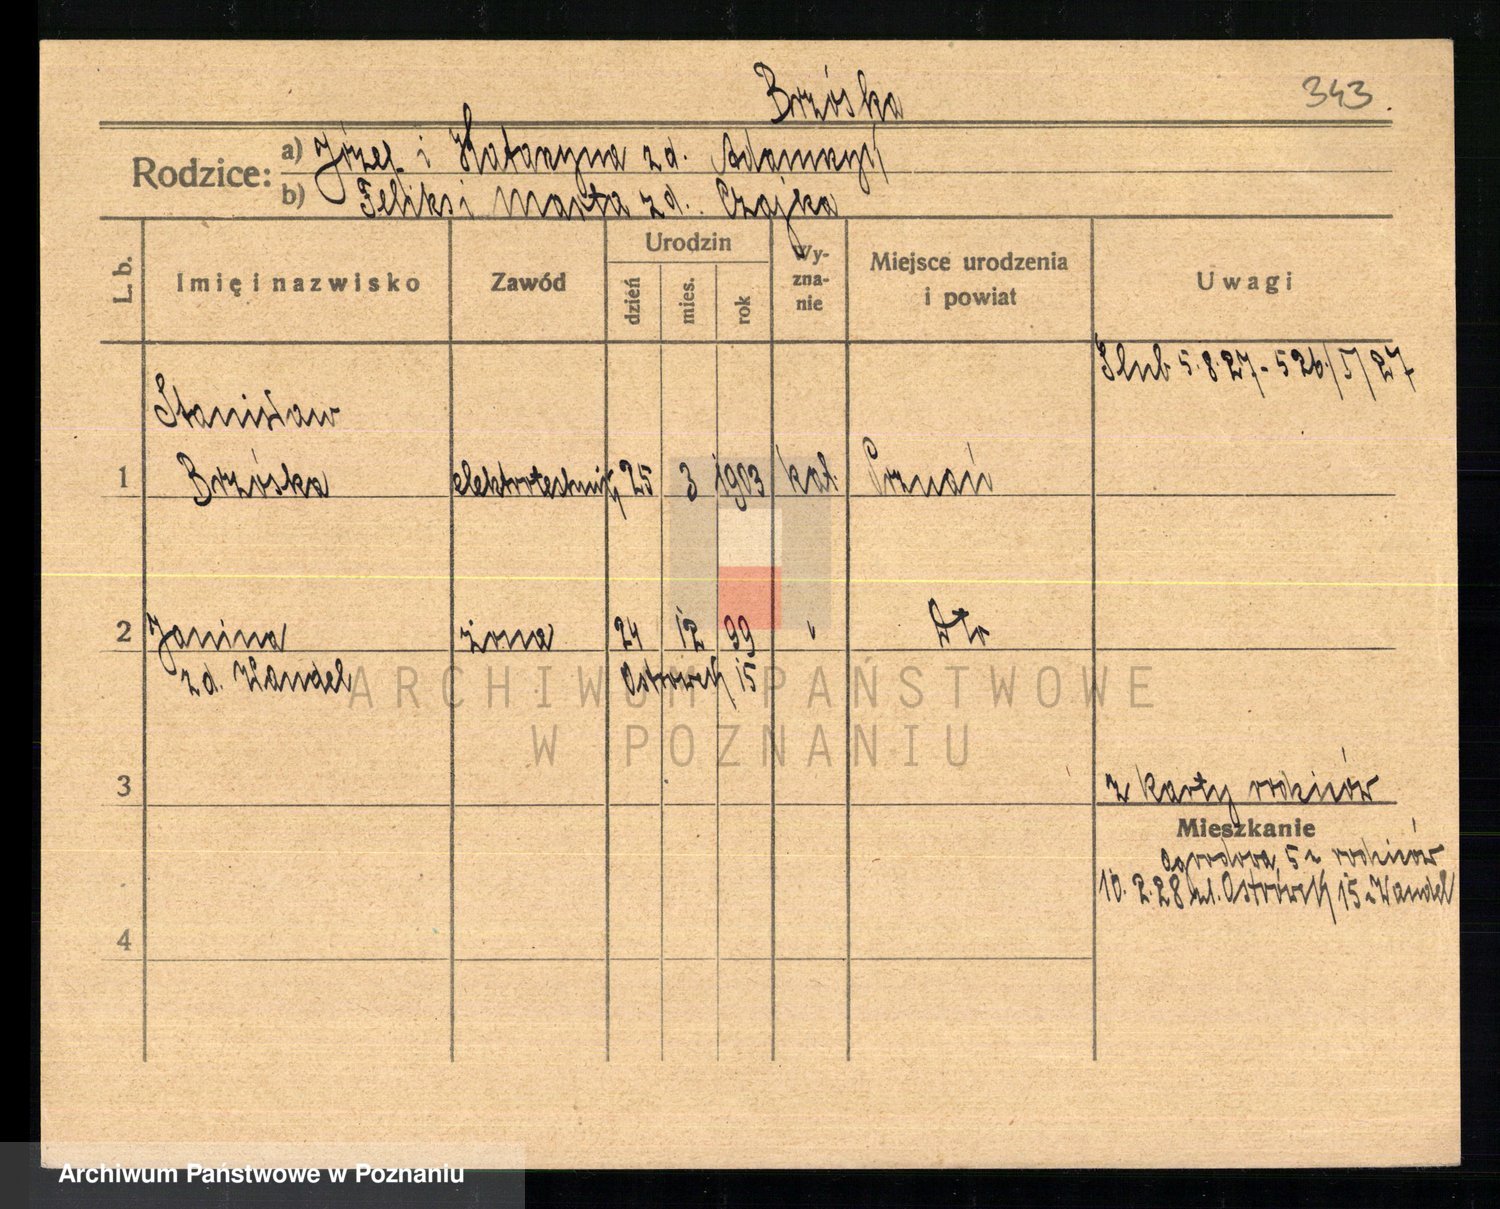 Brzóska
343.
Rodzice: a) Józef i Katarzyna zd. Adamczyk
b) Feliks i Marta zd. Czajka
L. b.
Imię i nazwisko
Zawód
Urodzin
dzień
mies.
rok
Wy-
zna-
nie
Miejsce urodzenia
i powiat
Uwagi
Ślub 5.8.27 - 526/V/27
Stanisław
1 Brzóska elektrotechnik 25 3 1903 kat. Poznań
2 Janina żona 24 12 99 " Dto
zd. Handel Ostrówek 15
ARCHIWUM PAŃSTWOWE
W POZNANIU
3
z karty rodziców
Mieszkanie
Ogrodowa 5 u rodziców
10.2.28 ul. Ostrówek 15 u Handel
4
Archiwum Państwowe w Poznaniu